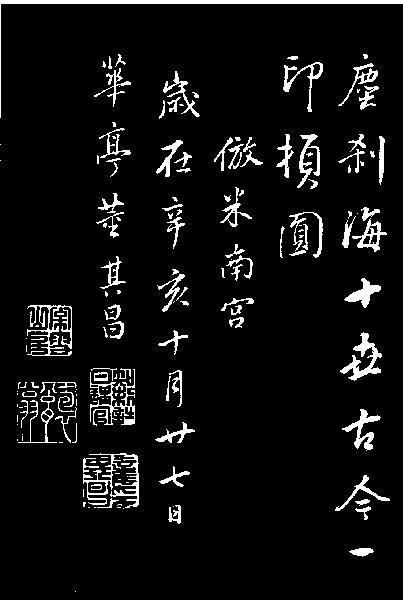 塵刹海十世古今一
印頓圓
倣米南宫
歳在辛亥十月廿七日
華亭董其昌